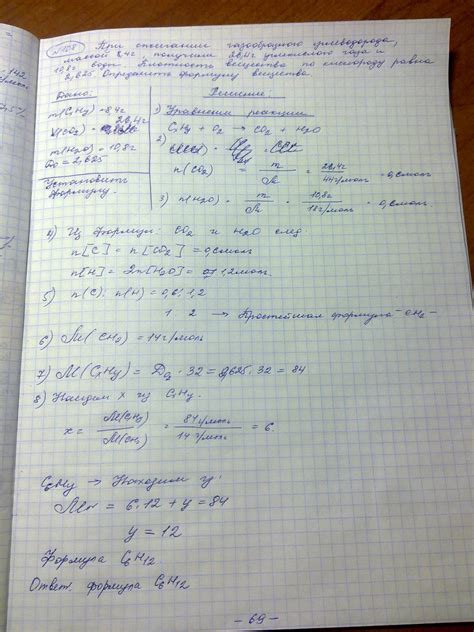 №108 При сгорании газообразного углеводорода,
массой 8,4г получили 26,4г углекислого газа и
10,8г воды. Плотность вещества по кислороду равна
2,625. Определить формулу вещества.
Дано:
m(CxHy) = 8,4г
(CO2) = 26,4г
m(H2O) = 10,8г
DO2 = 2,625
Установить
формулу.
Решение:
1) Уравнение реакции
CxHy + O2 → CO2 + H2O
2)
n(CO2) = m/M = 26,4г/44г/моль = 0,6моль
3) n(H2O) = m/M = 10,8г/18г/моль = 0,6моль.
4) Из формул: CO2 и H2O след.
n[C] = n[CO2] = 0,6моль
n[H] = 2n[H2O] = 1,2моль.
5) n(C) : n(H) = 0,6 : 1,2
1 2 → Простейшая формула - CH2 -
6) M(CH2) = 14г/моль
7) M(CxHy) = DO2 · 32 = 2,625 · 32 = 84
8) Находим x из CxHy.
x = M(CxHy)/M(CH2) = 84г/моль/14г/моль = 6
C6Hy → Находим y:
Mr = 6·12 + y = 84
y = 12
Формула C6H12
Ответ: формула C6H12
- 69 -